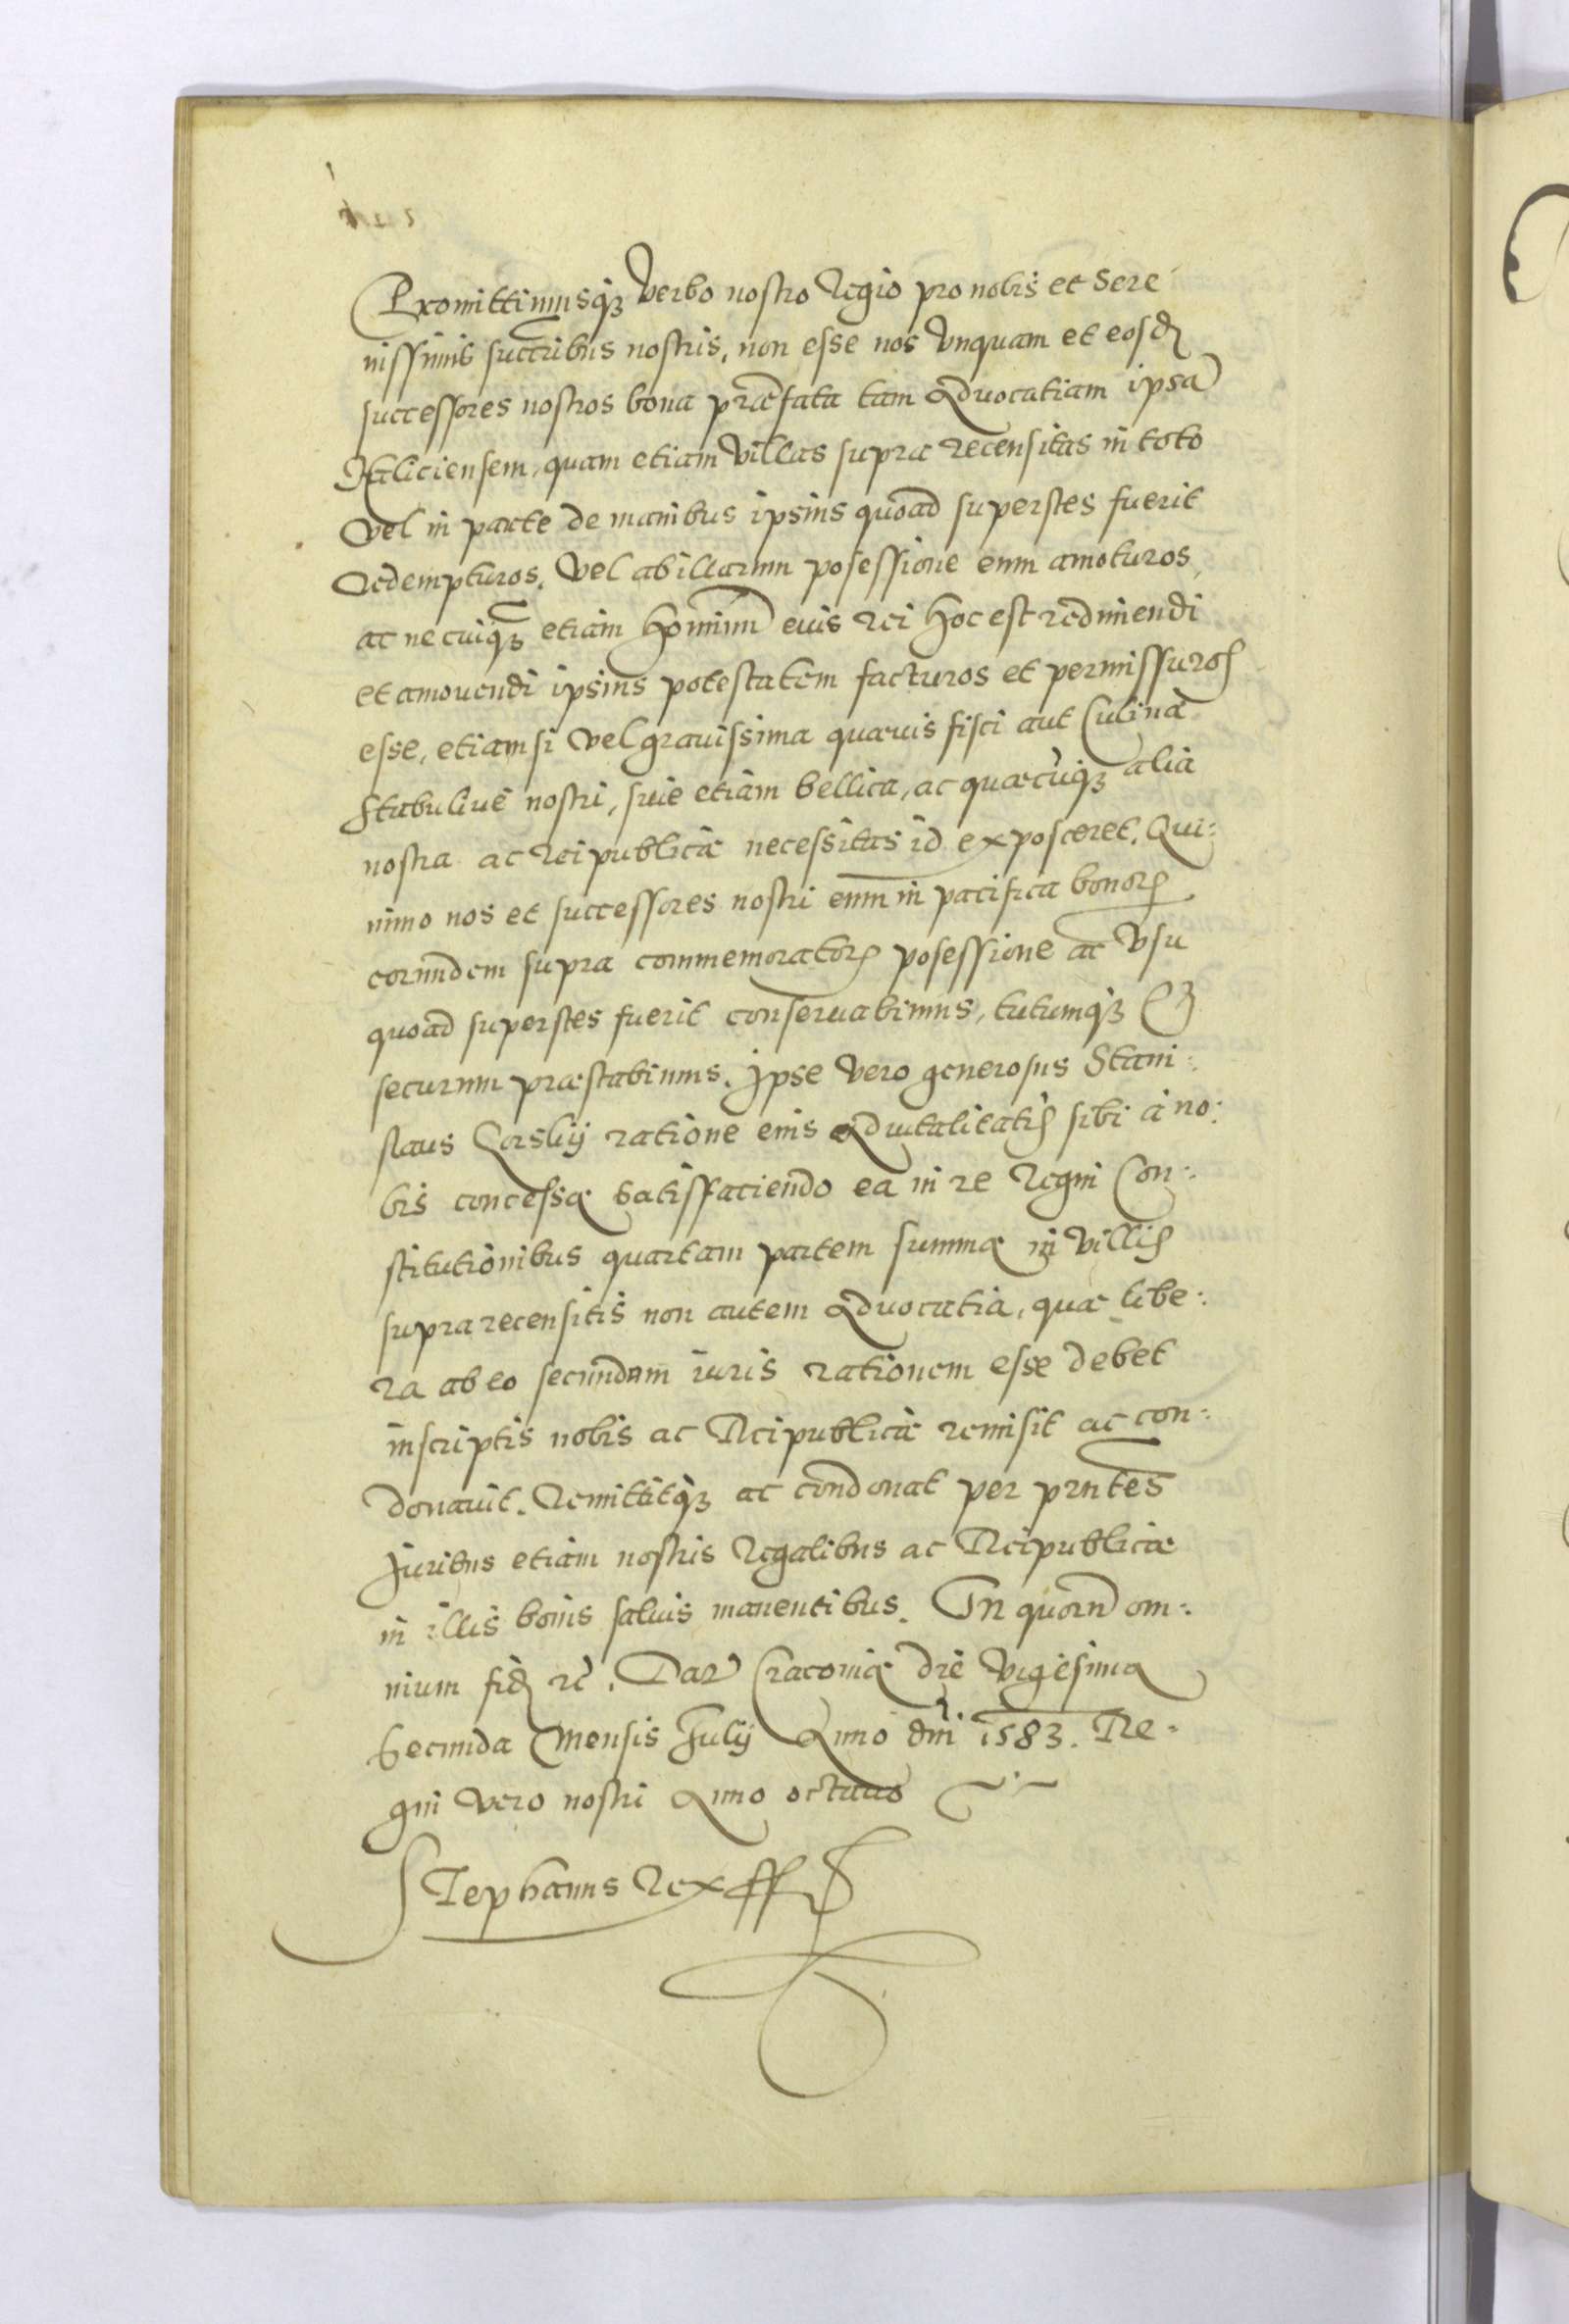 Promittimusq₃ verbo nostro Regio pro nobis et Sere
nissimis succribus nostris, non esse nos vnquam et eosd
successores nostros bona præfata tam Aduocatiam ipsā
Haliciensem, quam etiam villas supra recensitas in toto
vel in parte de manibus ipsius quoad superstes fuerit
redempturos, vel ab illarum posessione eum amoturos,
ac ne cuiq₃ etiam hominū eius rei hoc est redimendi
et amouendi ipsius potestatem facturos et permissuros
esse, etiamsi vel grauissima quæuis fisci aut Culinæ
stabuliue nostri, siue etiam bellica, ac quæcūq₃ alia
nostra ac Reipublicæ necessitas id exposceret. Qui:
nimo nos et successores nostri eum in pacifica bonor
eorundem supra commemorator posessione ac vsu
quoad superstes fuerit conseruabimus, tutumq₃ Et
securum præstabimus. Ipse vero generosus Stani:
slaus ratione eius Aduitalitatis sibi à no:
bis concessæ satisfaciendo ea in re Regni Con:
stitutionibus quartam partem summæ in villis
supra recensitis non autem Aduocatia, quæ libe:
ra ab eo secundum iuris rationem esse debet
inscriptis nobis ac Reipublicæ remisit ac con:
donauit. Remittitq₃ ac condonat per pntes
Iuribus etiam nostris Regalibus ac Reipublicæ
in illis bonis saluis manentibus. In quorū om:
nium fid rc. Dat Cracouiæ die vigesima
secunda Mensis Iulij Anno dni 1583. Re:
gni vero nostri Anno octauo
Stephanus Rex ff